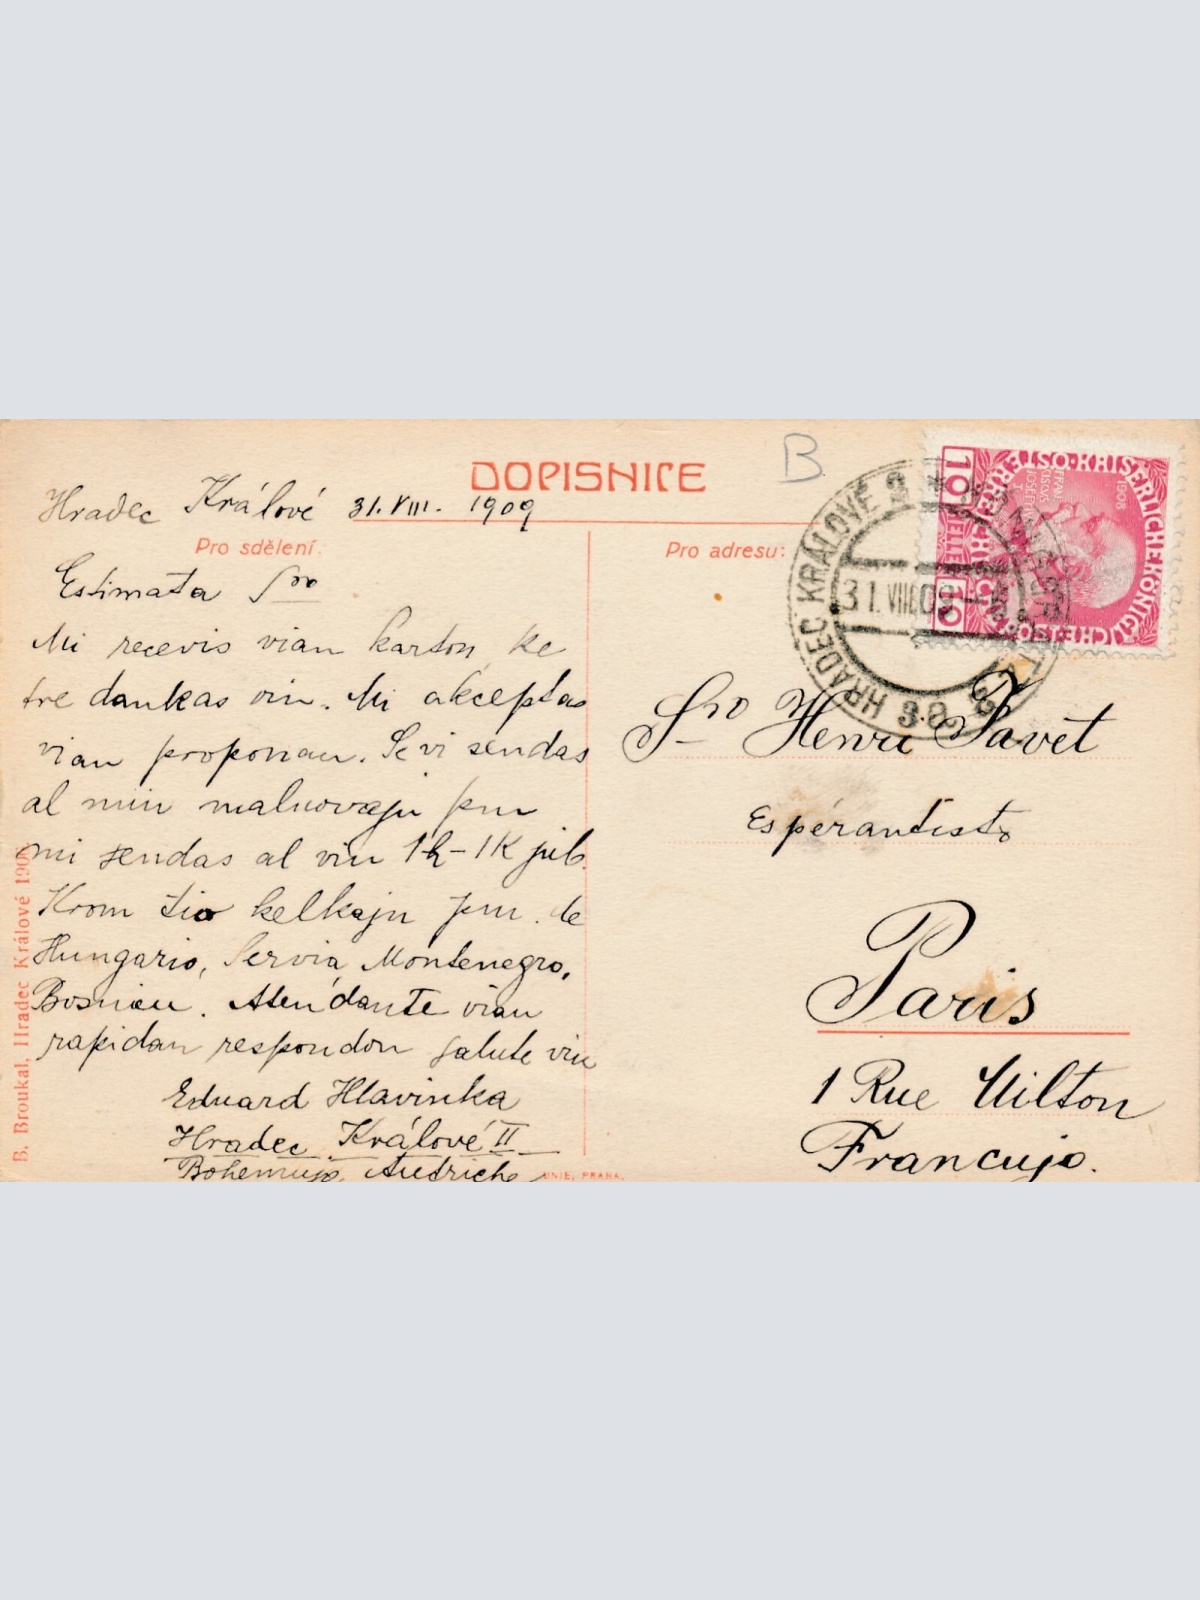 B.
DOPISNICE
Hradec Králové 31. VIII. 1909
Pro sdělení:
Estimata Sro
Mi recevis vian karton, ke
tre dankas vin. Mi akceptas
vian proponan. Se vi sendas
al min malnovajn pm
mi sendas al vin 1h-1K jub.
Krom tio kelkajn pm. de
Hungario, Servia, Montenegro,
Bosnien. Atendante vian
rapidan respondon salute vin
Eduard Hlavinka
Hradec Králové II
Bohemujo,
UNIE, PRAHA.
B. Broukal, Hradec Králové
Pro adresu:
Sro Henri Pavet
Espérantisto
Paris
1 Rue Milton
Francujo.
HRADEC KRÁLOVÉ
31.VIII.09
KÖNIGLICHE
1908
10 10